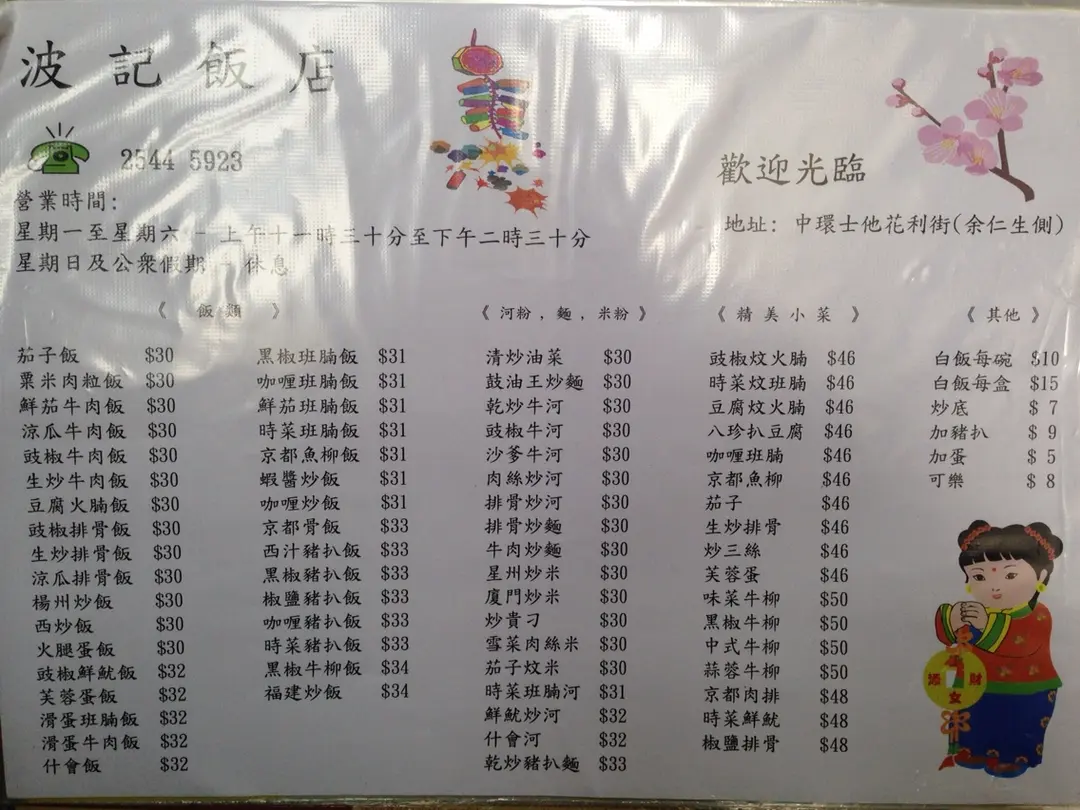 波記飯店
2544 5923
營業時間:
星期一至星期六 - 上午十一時三十分至下午二時三十分
星期日及公衆假期 - 休息
歡迎光臨
地址: 中環士他花利街(余仁生側)
《 飯類 》
茄子飯 $30
粟米肉粒飯 $30
鮮茄牛肉飯 $30
涼瓜牛肉飯 $30
豉椒牛肉飯 $30
生炒牛肉飯 $30
豆腐火腩飯 $30
豉椒排骨飯 $30
生炒排骨飯 $30
涼瓜排骨飯 $30
楊州炒飯 $30
西炒飯 $30
火腿蛋飯 $30
豉椒鮮魷飯 $32
芙蓉蛋飯 $32
滑蛋班腩飯 $32
滑蛋牛肉飯 $32
什會飯 $32
黑椒班腩飯 $31
咖喱班腩飯 $31
鮮茄班腩飯 $31
時菜班腩飯 $31
京都魚柳飯 $31
蝦醬炒飯 $31
咖喱炒飯 $31
京都骨飯 $33
西汁豬扒飯 $33
黑椒豬扒飯 $33
椒鹽豬扒飯 $33
咖喱豬扒飯 $33
時菜豬扒飯 $33
黑椒牛柳飯 $34
福建炒飯 $34
《 河粉 , 麵 , 米粉 》
清炒油菜 $30
鼓油王炒麵 $30
乾炒牛河 $30
豉椒牛河 $30
沙爹牛河 $30
肉絲炒河 $30
排骨炒河 $30
排骨炒麵 $30
牛肉炒麵 $30
星州炒米 $30
廈門炒米 $30
炒貴刁 $30
雪菜肉絲米 $30
茄子炆米 $30
時菜班腩河 $31
鮮魷炒河 $32
什會河 $32
乾炒豬扒麵 $33
《 精美小菜 》
豉椒炆火腩 $46
時菜炆班腩 $46
豆腐炆火腩 $46
八珍扒豆腐 $46
咖喱班腩 $46
京都魚柳 $46
茄子 $46
生炒排骨 $46
炒三絲 $46
芙蓉蛋 $46
味菜牛柳 $50
黑椒牛柳 $50
中式牛柳 $50
蒜蓉牛柳 $50
京都肉排 $48
時菜鮮魷 $48
椒鹽排骨 $48
《 其他 》
白飯每碗 $10
白飯每盒 $15
炒底 $ 7
加豬扒 $ 9
加蛋 $ 5
可樂 $ 8